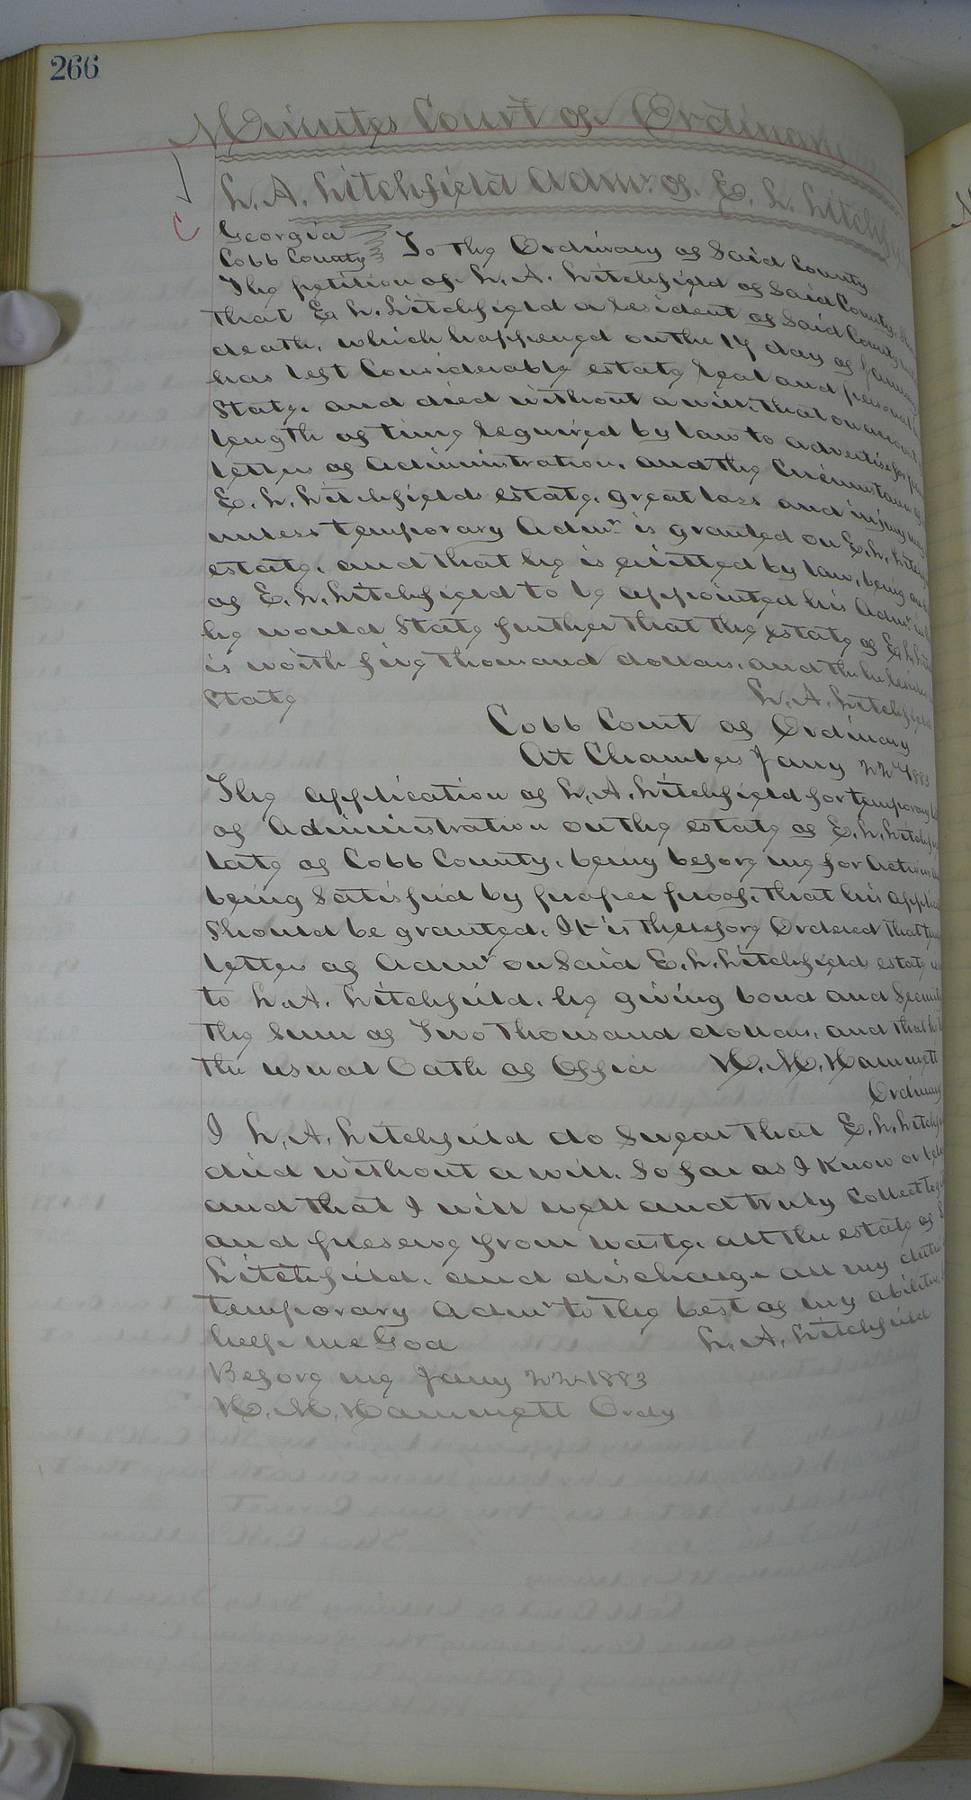 266
Minutes Court of Ordinary
L. A. Litchfield Admr. of E. L. Litchf
C
Georgia
Cobb County To the Ordinary of Said County
The petition of L. A. Litchfield of Said County
that E. L. Litchfield a resident of Said County
death, which happened on the 14 day of January
has left Considerable estate real and personal
State, and died without a will, that on account
length of time required by law to advertise for
letters of administration, and the Circumstances
E. L. Litchfields estate, great loss and injury may
unless temporary Admr. is granted on E. L. Litch
estate, and that he is entitled by law, being
of E. L. Litchfield to be appointed his Admr.
he would State further that the estate of E. L.
is worth five thousand dollars, and the he
State L. A. Litchfield
Cobb Court of Ordinary
At Chambers Jany 22d 1883
The application of L. A. Litchfield for temporary
of Administration on the estate of E. L. Litchf
late of Cobb County, being before me for Action
being Satisfied by proper proof, that his appli
Should be granted, It is therefore Ordered that
letters of Admr on Said E. L. Litchfields estate
to L. A. Litchfield, he giving bond and Securi
the Sum of Two thousand dollars, and that he
the usual Oath of Office H. M. Hammett
Ordinary
I L. A. Litchfield do Swear that E. L. Litchf
died without a will, So far as I Know or
and that I will well and truly Collect
and preserve from waste, all the estate of
Litchfield, and discharge all my duti
temporary Admr to the best of my abilities,
help me God L. A. Litchfield
Before me Jany 22 1883
H. M. Hammett Ordy